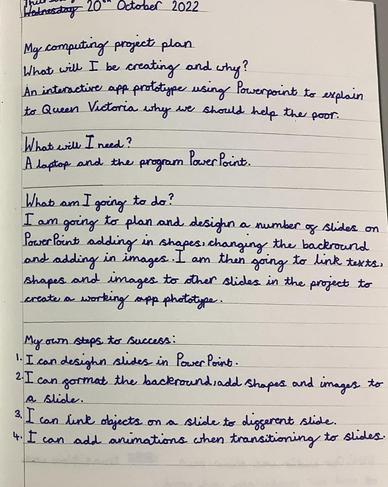 Thursday
Wednesday 20th October 2022
My computing project plan
What will I be creating and why?
An interactive app prototype using Powerpoint to explain
to Queen Victoria why we should help the poor.
What will I need?
A laptop and the program PowerPoint.
What am I going to do?
I am going to plan and desighn a number of slides on
PowerPoint adding in shapes, changing the backround
and adding in images. I am then going to link texts,
shapes and images to other slides in the project to
create a working app phototype.
My own steps to success:
1. I can desighn slides in PowerPoint.
2. I can format the backround, add shapes and images to
a slide.
3. I can link objects on a slide to different slide.
4. I can add animations when transitioning to slides.